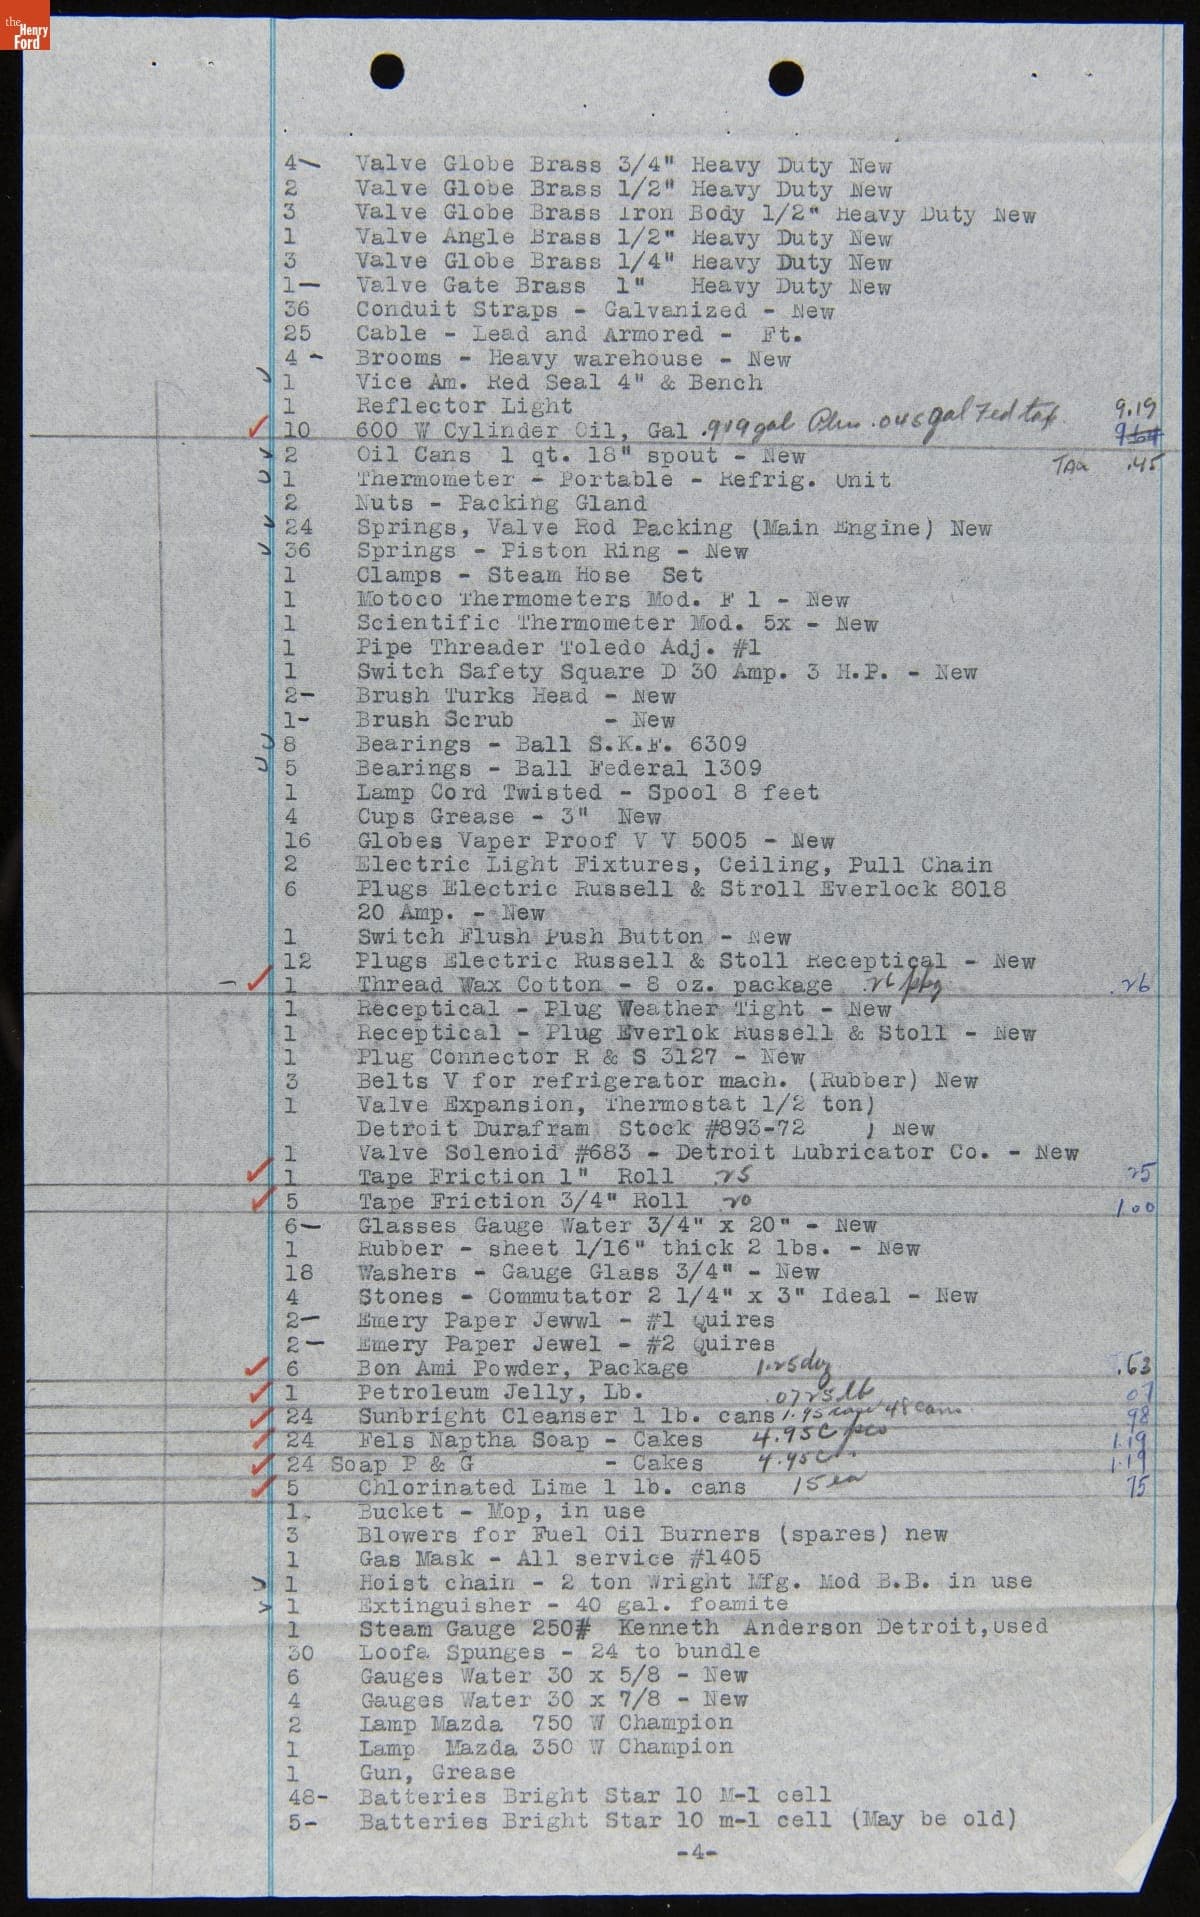 the
Henry
Ford
4- Valve Globe Brass 3/4" Heavy Duty New
2 Valve Globe Brass 1/2" Heavy Duty New
3 Valve Globe Brass Iron Body 1/2" Heavy Duty New
1 Valve Angle Brass 1/2" Heavy Duty New
3 Valve Globe Brass 1/4" Heavy Duty New
1- Valve Gate Brass 1" Heavy Duty New
36 Conduit Straps - Galvanized - New
25 Cable - Lead and Armored - Ft.
4 - Brooms - Heavy warehouse - New
1 Vice Am. Red Seal 4" & Bench
1 Reflector Light 9.19
10 600 W Cylinder Oil, Gal .919 gal Plus .045 gal Fed tax
2 Oil Cans 1 qt. 18" spout - New Tax .45
1 Thermometer - Portable - Refrig. Unit
2 Nuts - Packing Gland
24 Springs, Valve Rod Packing (Main Engine) New
36 Springs - Piston Ring - New
1 Clamps - Steam Hose Set
1 Motoco Thermometers Mod. F 1 - New
1 Scientific Thermometer Mod. 5x - New
1 Pipe Threader Toledo Adj. #1
1 Switch Safety Square D 30 Amp. 3 H.P. - New
2- Brush Turks Head - New
1- Brush Scrub - New
8 Bearings - Ball S.K.F. 6309
5 Bearings - Ball Federal 1309
1 Lamp Cord Twisted - Spool 8 feet
4 Cups Grease - 3" New
16 Globes Vaper Proof V V 5005 - New
2 Electric Light Fixtures, Ceiling, Pull Chain
6 Plugs Electric Russell & Stroll Everlock 8018
20 Amp. - New
1 Switch Flush Push Button - New
12 Plugs Electric Russell & Stoll Receptical - New
- 1 Thread Wax Cotton - 8 oz. package .26 pkg .26
1 Receptical - Plug Weather Tight - New
1 Receptical - Plug Everlok Russell & Stoll - New
1 Plug Connector R & S 3127 - New
3 Belts V for refrigerator mach. (Rubber) New
1 Valve Expansion, Thermostat 1/2 ton)
Detroit Durafram Stock #893-72 ) New
1 Valve Solenoid #683 - Detroit Lubricator Co. - New
1 Tape Friction 1" Roll 25 25
5 Tape Friction 3/4" Roll 20 1.00
6- Glasses Gauge Water 3/4" x 20" - New
1 Rubber - sheet 1/16" thick 2 lbs. - New
18 Washers - Gauge Glass 3/4" - New
4 Stones - Commutator 2 1/4" x 3" Ideal - New
2- Emery Paper Jewwl - #1 Quires
2- Emery Paper Jewel - #2 Quires
6 Bon Ami Powder, Package 1.25 dz .63
1 Petroleum Jelly, Lb. .0725 lb 07
24 Sunbright Cleanser 1 lb. cans 1.95 case 48 cans. 98
24 Fels Naptha Soap - Cakes 4.95 C pcs 1.19
24 Soap P & G - Cakes 4.95 C " 1.19
5 Chlorinated Lime 1 lb. cans 15 ea 75
1. Bucket - Mop, in use
3 Blowers for Fuel Oil Burners (spares) new
1 Gas Mask - All service #1405
1 Hoist chain - 2 ton Wright Mfg. Mod B.B. in use
1 Extinguisher - 40 gal. foamite
1 Steam Gauge 250# Kenneth Anderson Detroit,used
30 Loofa Spunges - 24 to bundle
6 Gauges Water 30 x 5/8 - New
4 Gauges Water 30 x 7/8 - New
2 Lamp Mazda 750 W Champion
1 Lamp Mazda 350 W Champion
1 Gun, Grease
48- Batteries Bright Star 10 M-1 cell
5- Batteries Bright Star 10 m-1 cell (May be old)
-4-